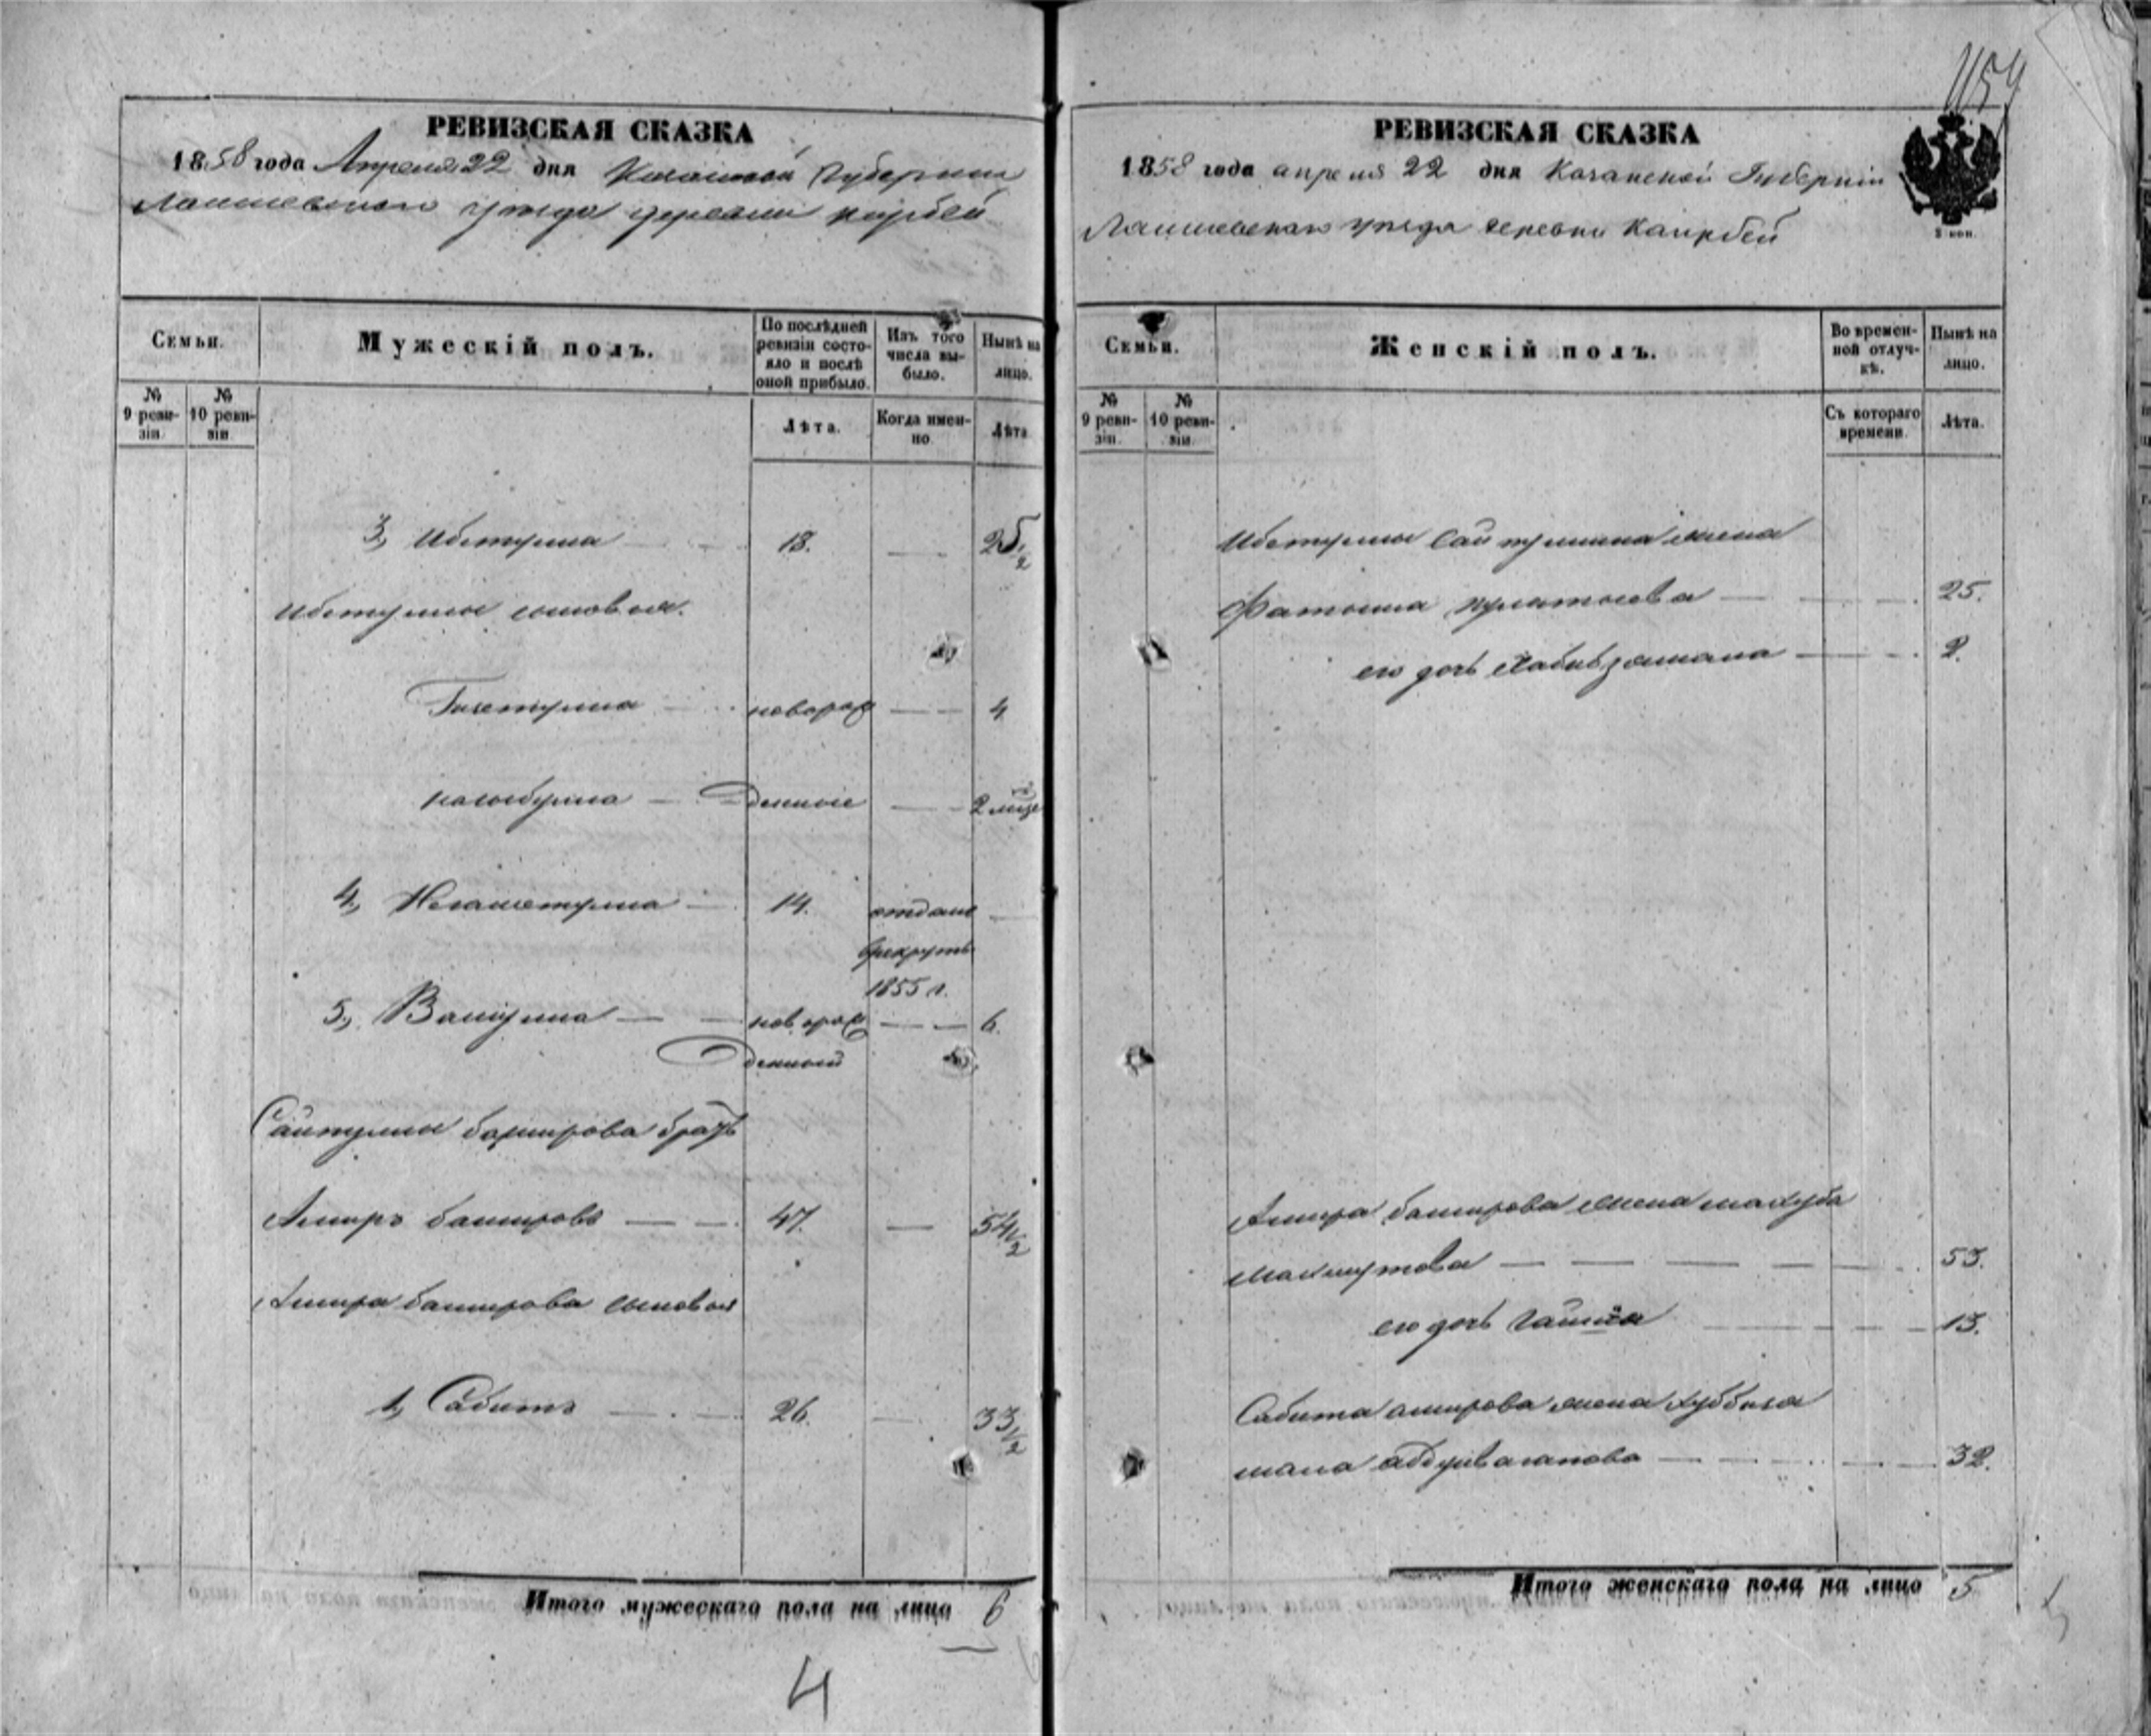 РЕВИЗСКАЯ СКАЗКА
1858 года Апреля 22 дня Казанской Губернии
Лаишевского уезда деревни
Семьи.
Мужескій полъ.
По послѣдней ревизіи состояло и послѣ оной прибыло.
Изъ того числа выбыло.
Нынѣ на лицо.
№ 9 ревизіи.
№ 10 ревизіи.
Лѣта.
Когда именно
Лѣта
3, Ибетулла 18. — 25 1/2
Ибетуллы сыновья.
новорож — 4
денные — 2
4, 14. отданъ
в рекруты
1855 г.
5, Валиулла — новорож — 6.
денный
Сайтуллы баширова братъ
Амиръ башировъ — 47. — 54 1/2
Амира баширова сыновья
1, Сабитъ — 26. — 33 1/2
Итого мужескаго пола на лицо 6
4
1154
РЕВИЗСКАЯ СКАЗКА
1858 года апреля 22 дня Казанской Губерніи
Лаишевскаго уезда деревни Каирбей
Семьи.
Женскій полъ.
Во временной отлучкѣ.
Нынѣ на лицо.
№ 9 ревизіи.
№ 10 ревизіи.
Съ котораго времени.
Лѣта.
Ибетуллы Сайтуллина жена
25.
его дочь Хабибзямала — 2.
Амира баширова жена махуба
Махмутова — 53.
его дочь — 13.
Сабита амирова жена
Абдулваганова — 32.
Итого женскаго пола на лицо 5